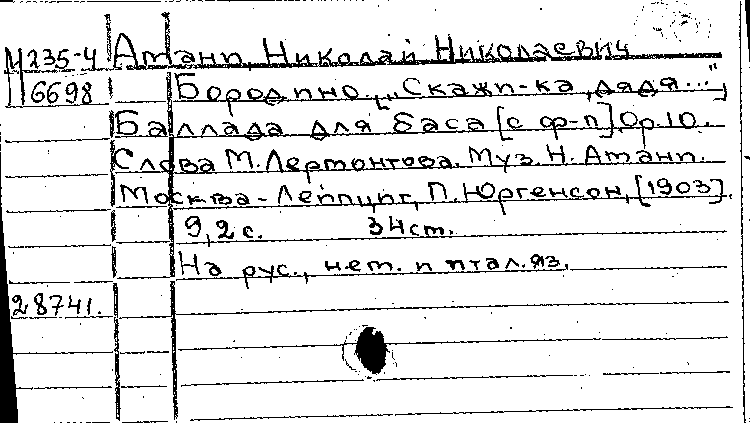 М235-4 Атанп, Николай Николаевич
6698 Бородино. ["Скажи-ка, дядя..."]
Баллада для баса [с ф-п]. Ор. 10.
Слова М. Лермонтова. Муз. Н. Атанп.
Москва - Лейпциг, П. Юргенсон, [1903].
9,2 с. 34 ст.
На рус., нем. и итал. яз.
28741.